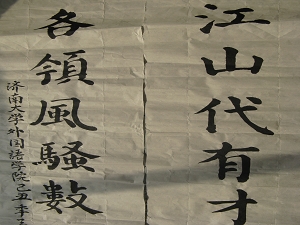 江山代有才
各領風騷數
济南大学外国语学院己丑李